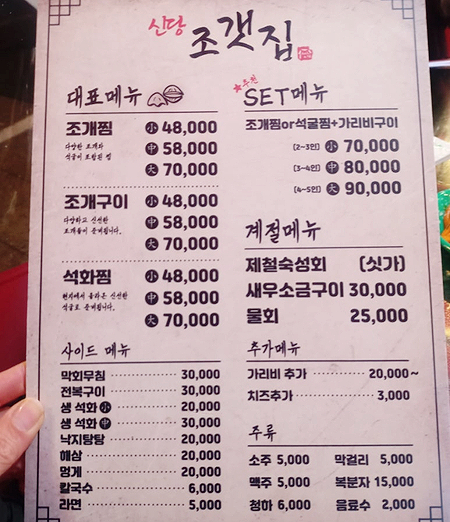 신당 조갯집
대표메뉴
조개찜 小 48,000
다양한 조개와
석굴이 포함된 찜
中 58,000
大 70,000
조개구이 小 48,000
다양하고 신선한
조개들이 준비됩니다.
中 58,000
大 70,000
석화찜 小 48,000
현지에서 올라온 신선한
석굴로 준비됩니다.
中 58,000
大 70,000
사이드 메뉴
막회무침 30,000
전복구이 30,000
생 석화 小 20,000
생 석화 中 30,000
낙지탕탕 20,000
해삼 20,000
멍게 20,000
칼국수 6,000
라면 5,000
추천
SET메뉴
조개찜or석굴찜+가리비구이
(2~3인) 小 70,000
(3~4인) 中 80,000
(4~5인) 大 90,000
계절메뉴
제철숙성회 (싯가)
새우소금구이 30,000
물회 25,000
추가메뉴
가리비 추가 20,000~
치즈추가 3,000
주류
소주 5,000 막걸리 5,000
맥주 5,000 복분자 15,000
청하 6,000 음료수 2,000